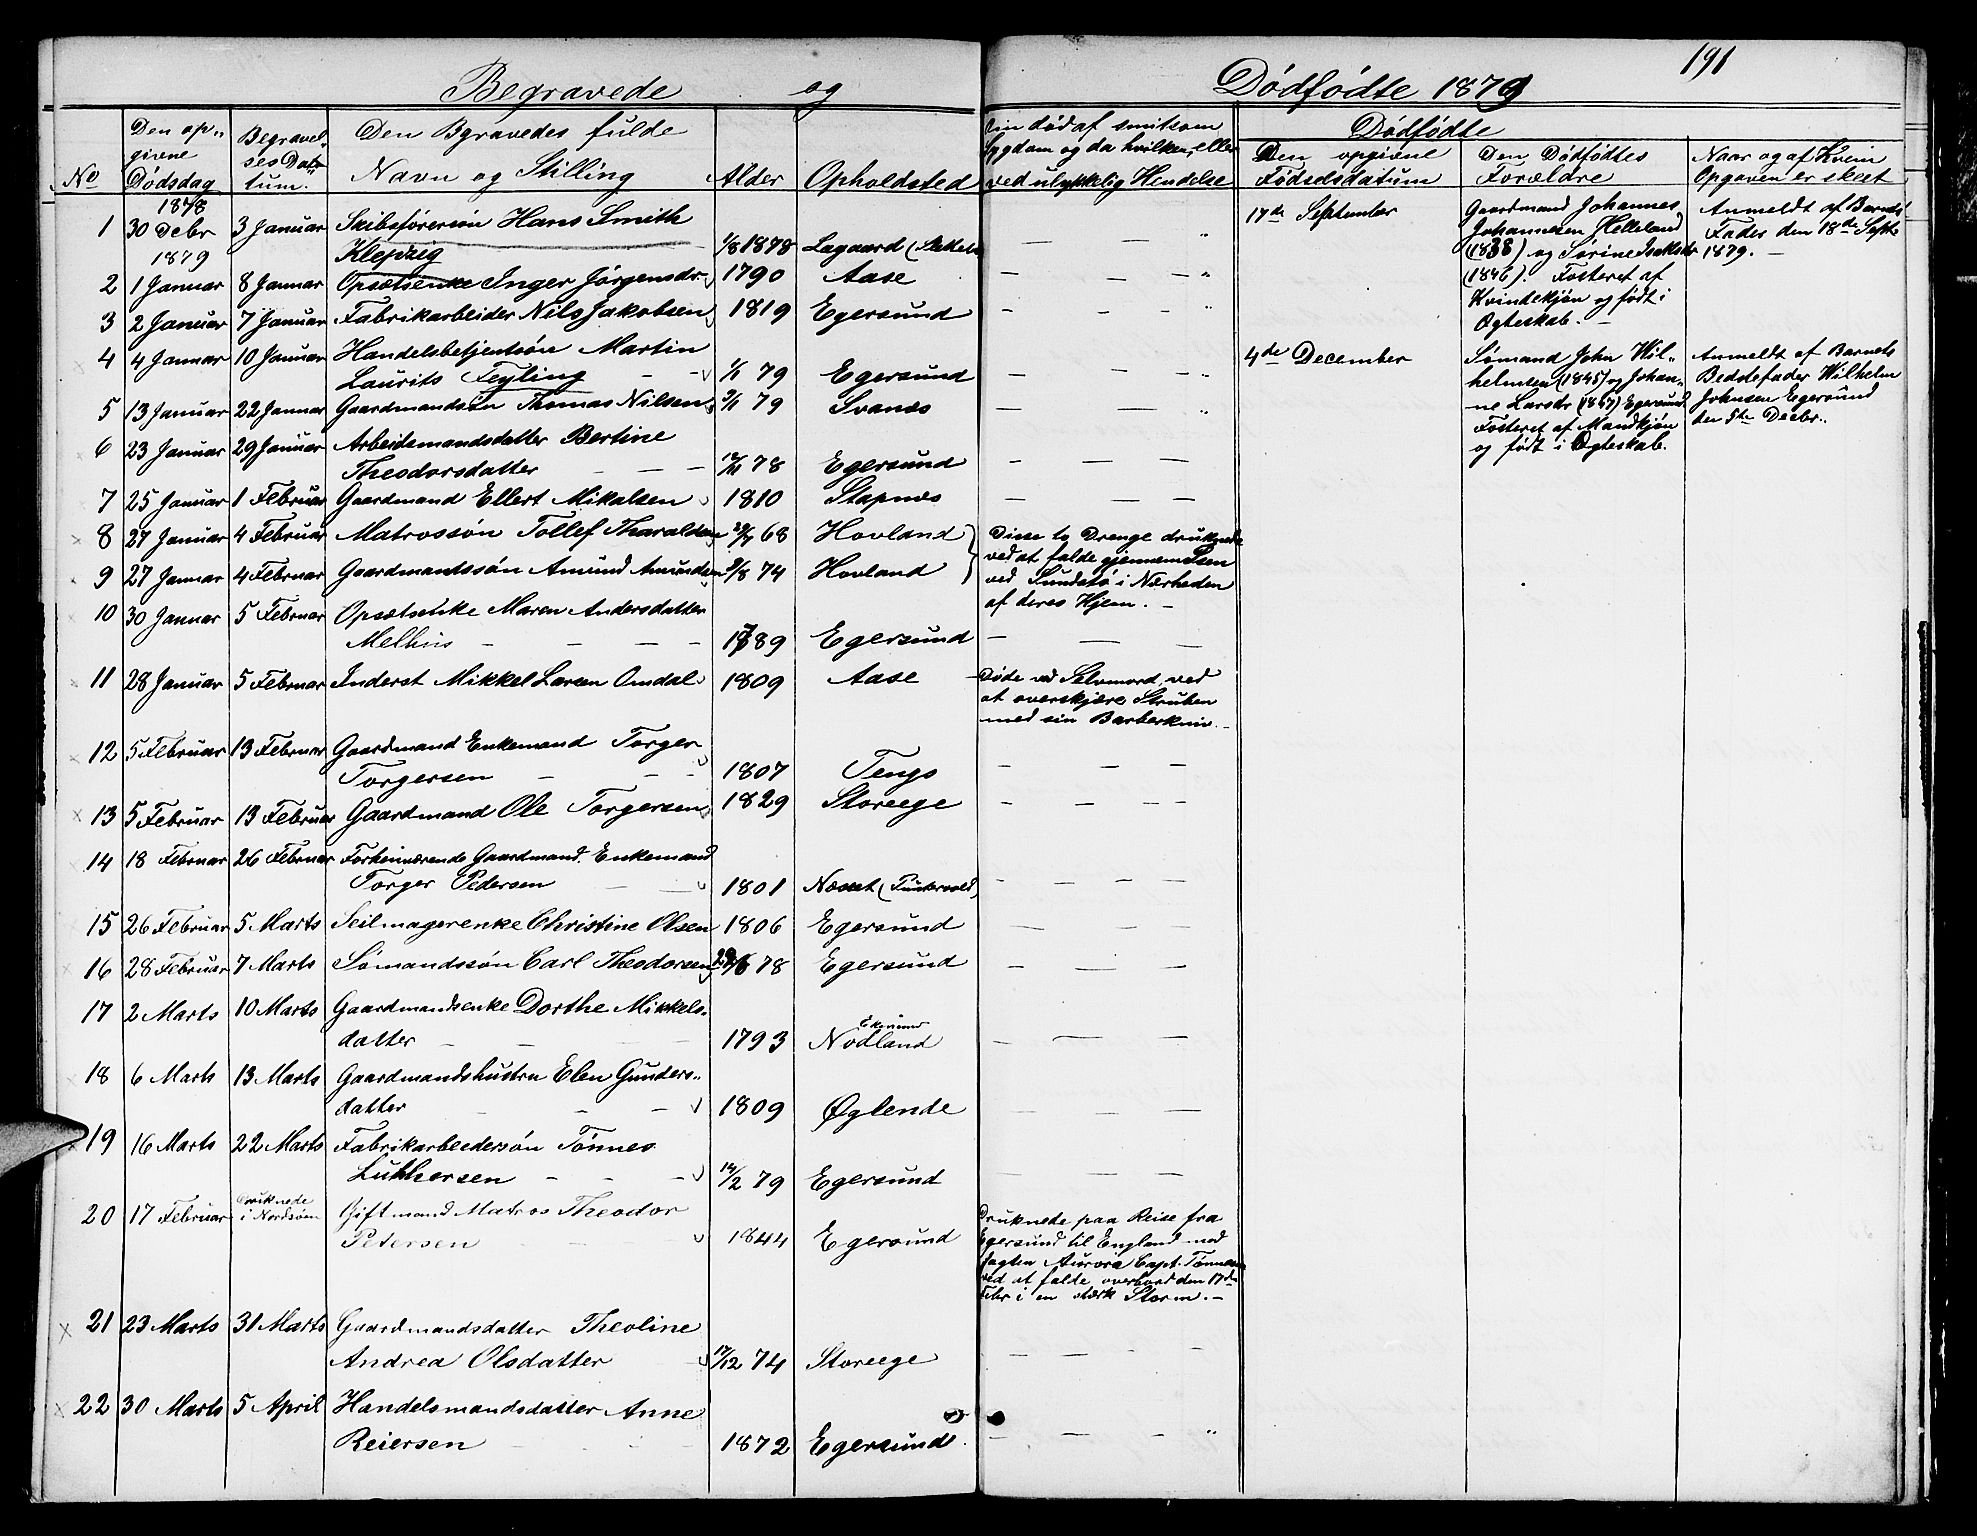 191
Begravede og Dødfødte 1879
No
Den op„
givne
Dødsdag
Begravel„
ses Da„
tum.
Den Bgravedes fulde
Navn og Stilling
Alder
Opholdsted
død af smitsom
Sygdom og da hvilken, eller
ved ulykkelig Hendelse
Dødfødte
Den opgivne
Fødselsdatum
Den Dødfødtes
Forældre
Naar og af Hvem
Opgaven er skeet
1878
1 30 Decbr 3 Januar Skibsførersøn Hans Smith
Klepzig 1/8 1878 Lagaard
1879
2 1 Januar 8 Januar Opsætsenke Inger Jørgensdr. 1790 Aase
3 2 Januar 7 Januar Fabrikarbeider Nils Jakobsen 1819 Egersund
4 4 Januar 10 Januar Handelsbetjentsøn Martin
Laurits Feyling 1/1 79 Egersund
5 13 Januar 22 Januar Gaardmandsøn Thomas Nilsen 3/1 79 Svanes
6 23 Januar 29 Januar Arbeidsmandsdatter Bertine
Theodorsdatter 78 Egersund
7 25 Januar 1 Februar Gaardmand Ellert Mikalsen 1810 Stapnes
8 27 Januar 4 Februar Matrossøn Tollef Tharaldsen 68 Hovland
9 27 Januar 4 Februar Gaardmandssøn Amund Amundsen /8 74 Hovland
Disse to Drenge druknede
ved at falde gjennem Isen
ved Sundstø i Nærheden
af deres Hjem. -
10 30 Januar 5 Februar Opsætsenke Maren Andersdatter
Melhus 1789 Egersund
11 28 Januar 5 Februar Inderst Mikkel Larsen Omdal 1809 Aase
Døde ved Selvmord, ved
at overskjære Struben
med sin Barberkniv. -
12 5 Februar 13 Februar Gaardmand Enkemand Torger
Torgersen 1807 Tengs
13 5 Februar 13 Februar Gaardmand Ole Torgersen 1829 Storeege
14 18 Februar 26 Februar Forhenværende Gaardmand. Enkemand
Torger Pedersen 1801 Næset
15 26 Februar 5 Marts Seilmagerenke Christine Olsen 1806 Egersund
16 28 Februar 7 Marts Sømandssøn Carl Theodorsen 78 Egersund
17 2 Marts 10 Marts Gaardmandsenke Dorthe Mikkels„
datter 1793 Nodland
18 6 Marts 13 Marts Gaardmandshustru Elen Gunders„
datter 1809 Øglende
19 16 Marts 22 Marts Fabrikarbeidersøn Tønnes
Lukkersen 14/2 79 Egersund
20 17 Februar Druknede
i Nordsøen Giftmand Matros Theodor
Petersen 1844 Egersund
Druknede paa Reise fra
Egersund til England med
Jagten Aurora Capt. Tønnesen
ved at falde overbord den 17de
Febr i en stærk Storm. -
21 23 Marts 31 Marts Gaardmandsdatter Theoline
Andrea Olsdatter 17/12 74 Storeege
22 30 Marts 5 April Handelsmandsdatter Anne
Reiersen 1872 Egersund.
17de September
Gaardmand Johannes
Johannesen Helleland
(1838) og Sørine Isaksdr
(1846). Fosteret af
Kvindekjøn og født i
Ægteskab. -
Anmeldt af Barnets
Fader den 18de Septbr
1879. -
4de December
Sømand John Wil„
helmsen (1845) og Johan„
ne Larsdr (1847) Egersund.
Fosteret af Mandkjøn
og født i Ægteskab.
Anmeldt af Barnets
Beddefader Wilhelm
Johnsen Egersund
den 5te Decbr.